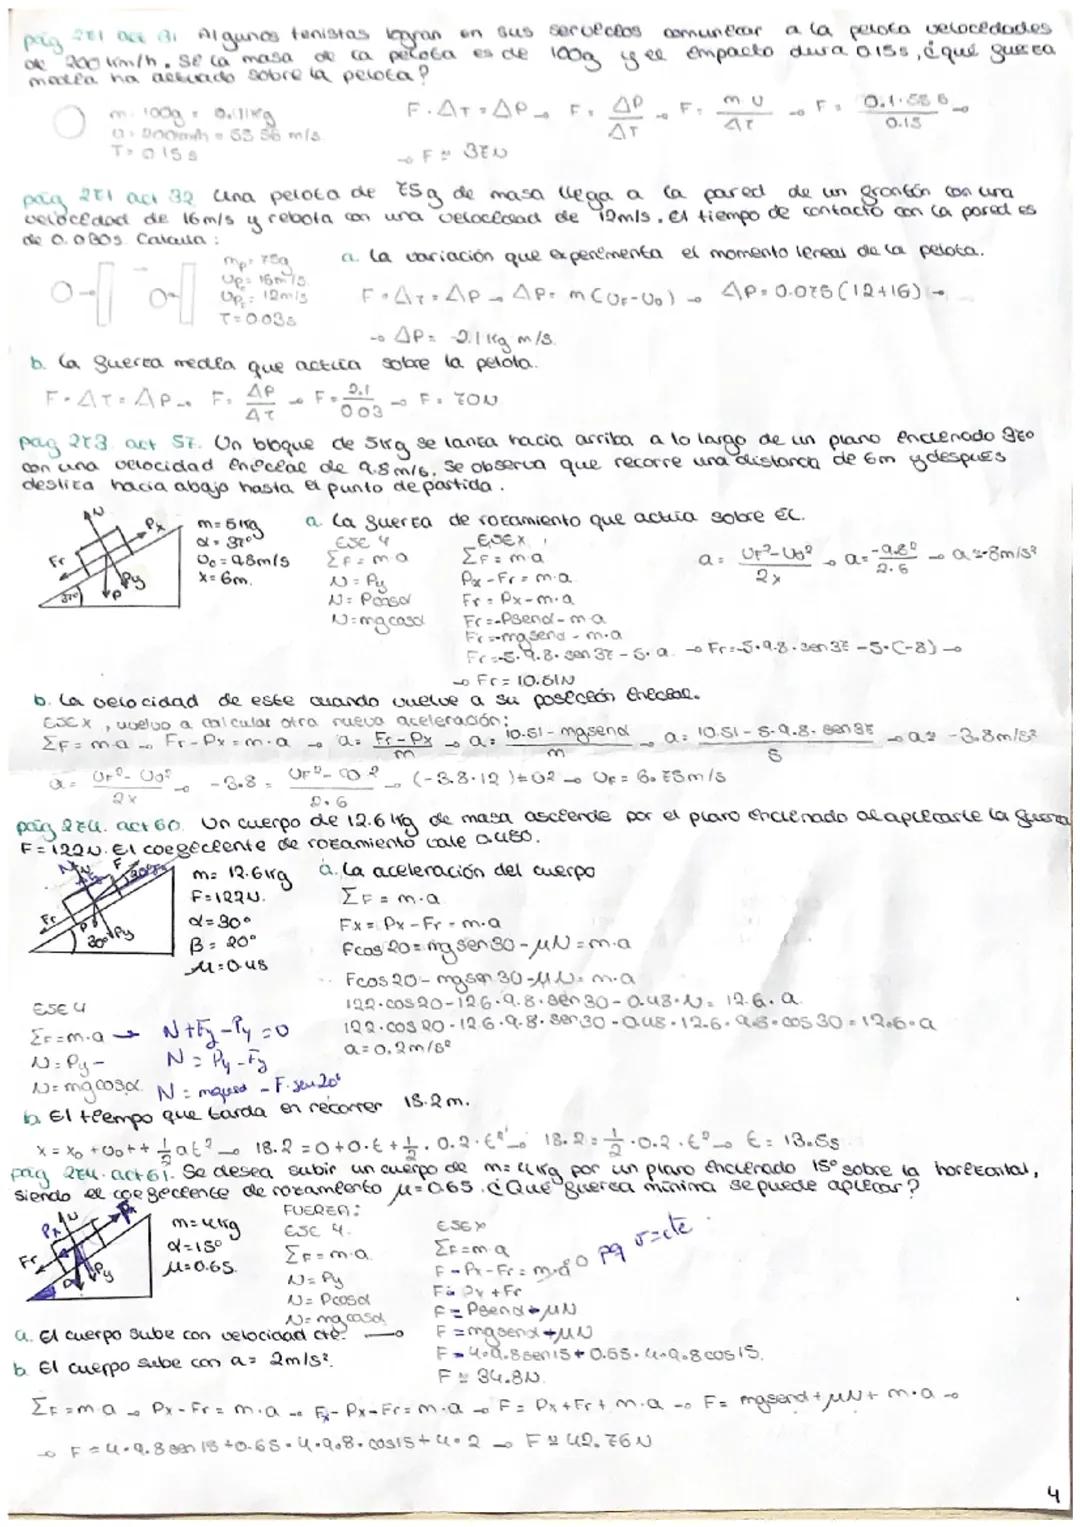 pág 271 act 31 Algunos tenistas logran en sus servicios comunicar a la pelota velocidades
de 200 km/h. Si la masa de la pelota es de 100g y el impacto dura 0.15s, ¿qué fuerza
media ha actuado sobre la pelota?
m: 100g = 0.1kg
T= 0.15 s
F·ΔT=ΔP → F= ΔP/ΔT → F= m v/ΔT → F= 0.1·55.6/0.15 →
→ F ≈ 37N
pág 271 act 32 Una pelota de 75g de masa llega a la pared de un frontón con una
velocidad de 16m/s y rebota con una velocidad de 12m/s. El tiempo de contacto con la pared es
de 0.030s. Calcula:
a. la variación que experimenta el momento lineal de la pelota.
mp= 75g
Vp= 16m/s
Vp= 12m/s
T=0.03s
F·ΔT=ΔP → ΔP= m(VF-V0) → ΔP=0.075(12+16) →
→ ΔP= 2.1 kg m/s
b. la fuerza media que actúa sobre la pelota.
F·ΔT=ΔP → F= ΔP/ΔT → F= 2.1/0.03 → F= 70N
pág 273 act 57. Un bloque de 5kg se lanza hacia arriba a lo largo de un plano inclinado 37º
con una velocidad inicial de 9.8m/s. Se observa que recorre una distancia de 6m y después
desliza hacia abajo hasta el punto de partida.
N Px Fr Py P 37º
m=5kg
α=37º
V0=9.8m/s
x=6m.
a. la fuerza de rozamiento que actúa sobre él.
EJE Y
ΣF=m·a
N=Py
N=Pcosα
N=mgcosα
EJE X
ΣF=m·a
Px-Fr=m·a
Fr=Px-m·a
Fr=-Psenα-m·a
Fr=-mgsenα-m·a
Fr=-5·9.8·sen37-5·a → Fr=-5·9.8·sen37-5·(-8) →
→ Fr=10.51N
a= VF²-V0²/2x → a=-9.8²/2·6 → a=-8m/s²
b. la velocidad de este cuando vuelve a su posición inicial.
EJE X, vuelvo a calcular otra nueva aceleración:
ΣF=m·a → Fr-Px=m·a → a= Fr-Px/m → a= 10.51-mgsenα/m → a= 10.51-5·9.8·sen37/5 → a= -3.8m/s²
a= VF²-V0²/2x → -3.8= VF²-0²/2·6 → VF= 6.75m/s
pág 274. act 60. Un cuerpo de 12.6 kg de masa asciende por el plano inclinado al aplicarle la fuerza
F=122N. El coeficiente de rozamiento vale 0.48.
m= 12.6kg
F=122N.
α=30º
β= 20º
μ=0.48
a. la aceleración del cuerpo
ΣF = m·a
Fx-Px-Fr=m·a
Fcos20-mgsen30-μN=m·a
Fcos20-mgsen30-μN=m·a
122·cos20-12.6·9.8·sen30-0.48·N=12.6·a
122·cos20-12.6·9.8·sen30-0.48·12.6·9.8·cos30=12.6·a
a=0.2m/s²
EJE Y
ΣF=m·a → N+Fy-Py=0
N=Py- N=Py-Fy
N=mgcosα. N=mgcosα-F·sen20º
b. El tiempo que tarda en recorrer 18.2m.
x=x0+v0·t+½at² → 18.2=0+0·t+½·0.2·t² → 18.2=½·0.2·t² → t=13.5s
pág 274. act 61. Se desea subir un cuerpo de m=4kg por un plano inclinado 15º sobre la horizontal,
siendo el coeficiente de rozamiento μ=0.65. ¿Qué fuerza mínima se puede aplicar?
m=4kg
α=15º
μ=0.65.
FUERZA:
EJE Y.
ΣF=m·a
N=Py
N=Pcosα
N=mgcosα
EJE X
ΣF=m·a
F-Px-Fr=m·a 0 pq v=cte
F=Px+Fr
F=Psenα+μN
F=mgsenα+μN
F=4·9.8sen15+0.65·4·9.8cos15.
F≈34.8N.
a. El cuerpo sube con velocidad cte. →
b. El cuerpo sube con a= 2m/s².
ΣF=m·a → Px-Fr=m·a → Fx-Px-Fr=m·a → F=Px+Fr+m·a → F= mgsenα+μN+m·a →
→ F=4·9.8sen15+0.65·4·9.8·cos15+4·2 → F≈42.76N
4